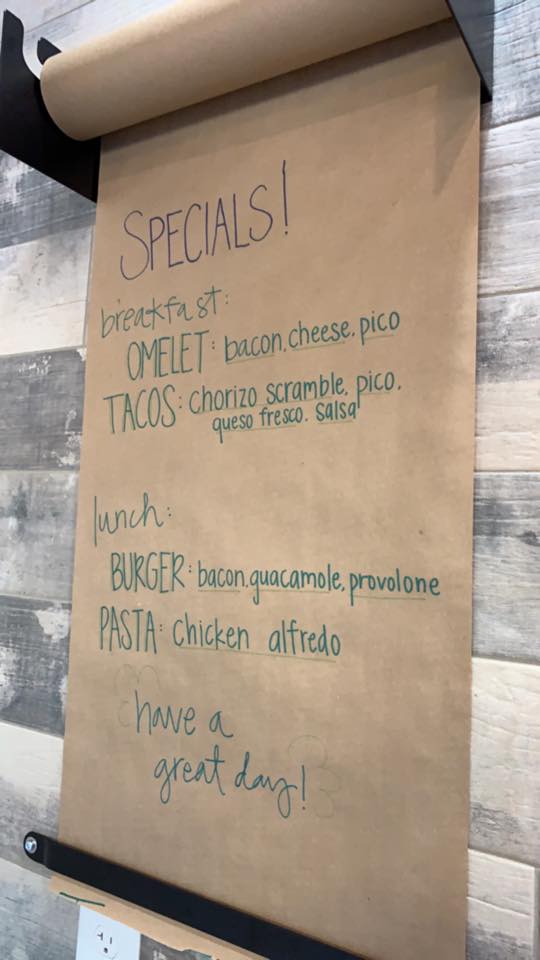 SPECIALS!
breakfast:
OMELET: bacon, cheese, pico
TACOS: chorizo scramble, pico,
queso fresco, salsa
lunch:
BURGER: bacon, guacamole, provolone
PASTA: chicken alfredo
have a
great day!